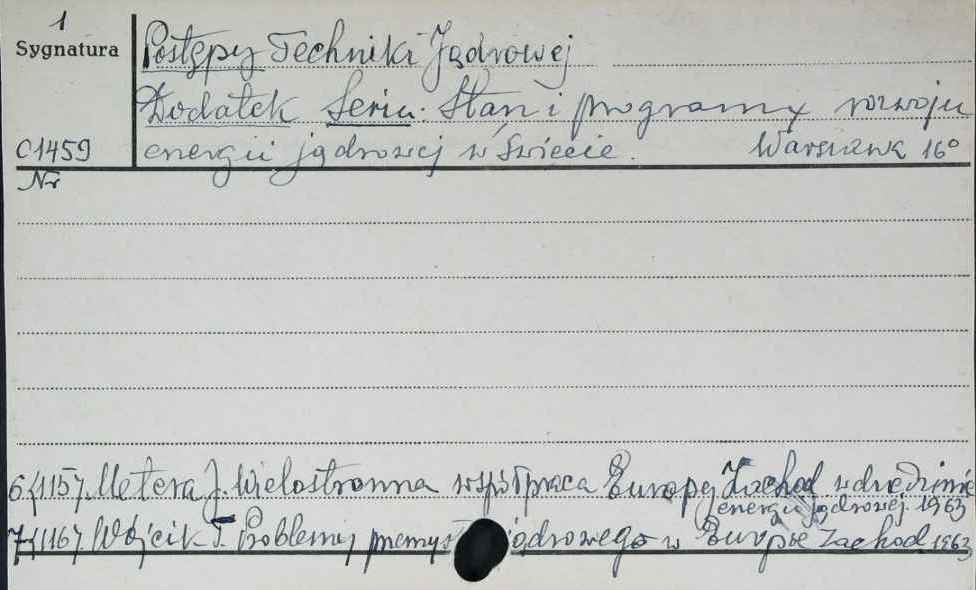 1
Sygnatura
Postępy Techniki Jądrowej
Dodatek Seria: Stan i programy rozwoju
C1459 energii jądrowej w świecie. Warszawa 16°
Nr
6/1157/. Metera J. Wielostronna współpraca Europy Zachod w dziedzinie
energii jądrowej. 1963
7/1167. Wójcik T. Problemy przemysł jądrowego w Europie Zachod 1963